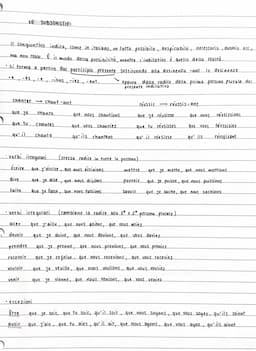 LE SUBJONCTIF
Il congiuntivo indica, come in italiano, un fatto possibile, desiderabile, necessario, dubbio ecc.
ma non reale. È il modo della possibilità, mentre l'indicativo è quello della realtà.
Si forma a partire dal participio presente
-e, -es, -e, -ions, -iez, -ent. oppure dalla radice della prima persona plurale del
presente indicativo
chanter → chant-ant réussir → réussis-ant
que je chante que nous chantions que je réussisse que nous réussissions
que tu chantes que vous chantiez que tu réussisses que vous réussissiez
qu'il chante qu'ils chantent qu'il réussisse qu'ils réussissent
verbi irregolari (stessa radice in tutte le persone)
écrire que j'écrive, que nous écrivions mettre que je mette, que nous mettions
dire que je dise, que nous disions pouvoir que je puisse, que nous puissions
faire que je fasse, que nous fassions savoir que je sache, que nous sachions
verbi irregolari (cambiano la radice alla 1ª e 2ª persona plurale)
aller que j'aille, que nous allions, que vous alliez
devoir que je doive, que nous devions, que vous deviez
prendre que je prenne, que nous prenions, que vous preniez
recevoir que je reçoive, que nous recevions, que vous receviez
vouloir que je veuille, que nous voulions, que vous vouliez
venir que je vienne, que nous venions, que vous veniez
eccezioni
être que je sois, que tu sois, qu'il soit, que nous soyons, que vous soyez, qu'ils soient
avoir que j'aie, que tu aies, qu'il ait, que nous ayons, que vous ayez, qu'ils aient